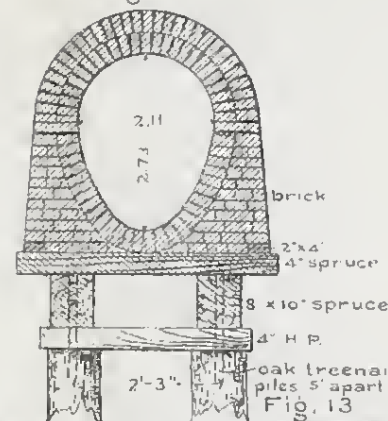 2.11
2.73
brick
2"x4"
4" spruce
8 x 10" spruce
4" H.P.
oak treenai
piles 5' apart
2'-3"
Fig. 13